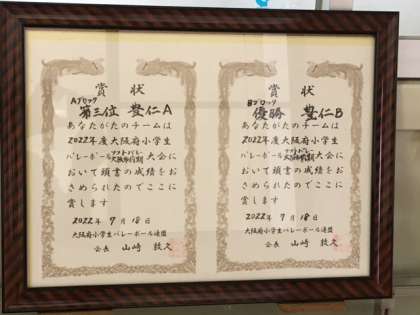 賞状
Aブロック
第三位 豊仁A
あなたがたのチームは
2022年度大阪府小学生
バレーボールソフトバレー大阪市前期大会に
おいて頭書の成績をお
さめられたのでここに
賞します
2022年9月18日
大阪府小学生バレーボール連盟
会長 山﨑
賞状
Bブロック
優勝 豊仁B
あなたがたのチームは
2022年度大阪府小学生
バレーボールソフトバレー大阪市前期大会に
おいて頭書の成績をお
さめられたのでここに
賞します
2022年9月18日
大阪府小学生バレーボール連盟
会長 山﨑